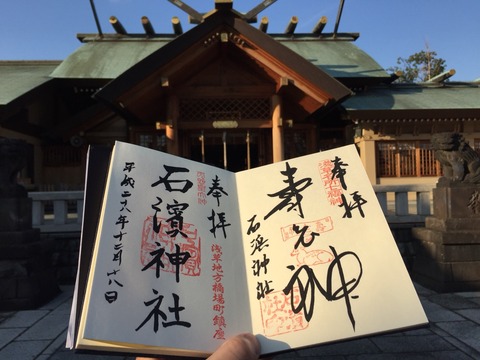 奉拝
寿老神
石浜神社
奉拝
浅草地方橋場町鎮座
石濱神社
平成二八年十二月十八日